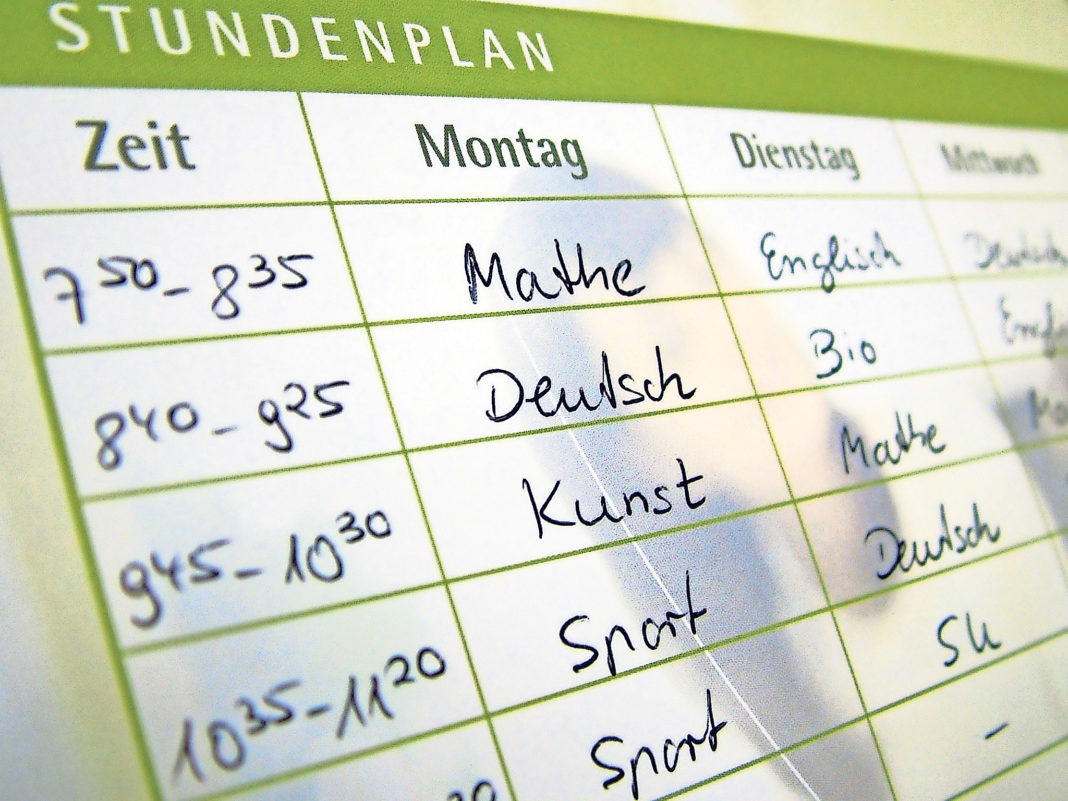 STUNDENPLAN
Zeit Montag Dienstag Mittwoch
7 50 - 8 35 Mathe Englisch Deutsch
8 40 - 9 25 Deutsch Bio
9 45 - 10 30 Kunst Mathe
10 35 - 11 20 Sport Deutsch
Sport SK
-